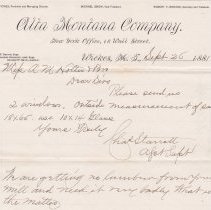 Alta Montana Company.
New York Office, 18 Wall Street.
Wickes, M. T. Sept 26 1881
Mess A. M. Holter & Bro
Dear Sirs
Please send us
2 window. outside measurement of sash
18 x 65. use 10 x 14 Glass
Yours Truly
Supt
We are getting no lumber from your
mill and need it very badly What is
the matter.